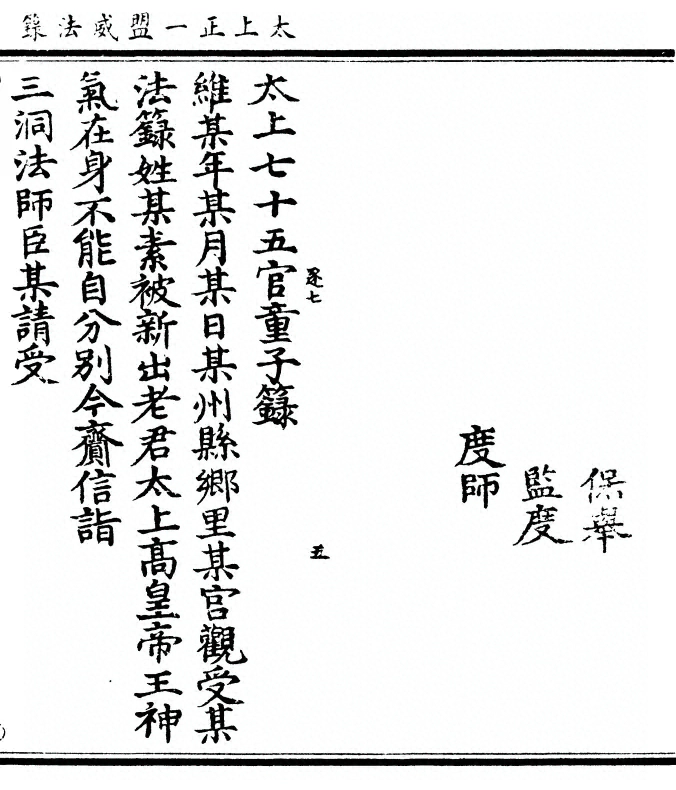 太上正一盟威法籙
保舉
監度
度師
逐七
五
太上七十五官童子籙
維某年某月某日某州縣鄉里某宮觀受某
法籙姓某素被新出老君太上高皇帝王神
氣在身不能自分別今齎信詣
三洞法師臣某請受